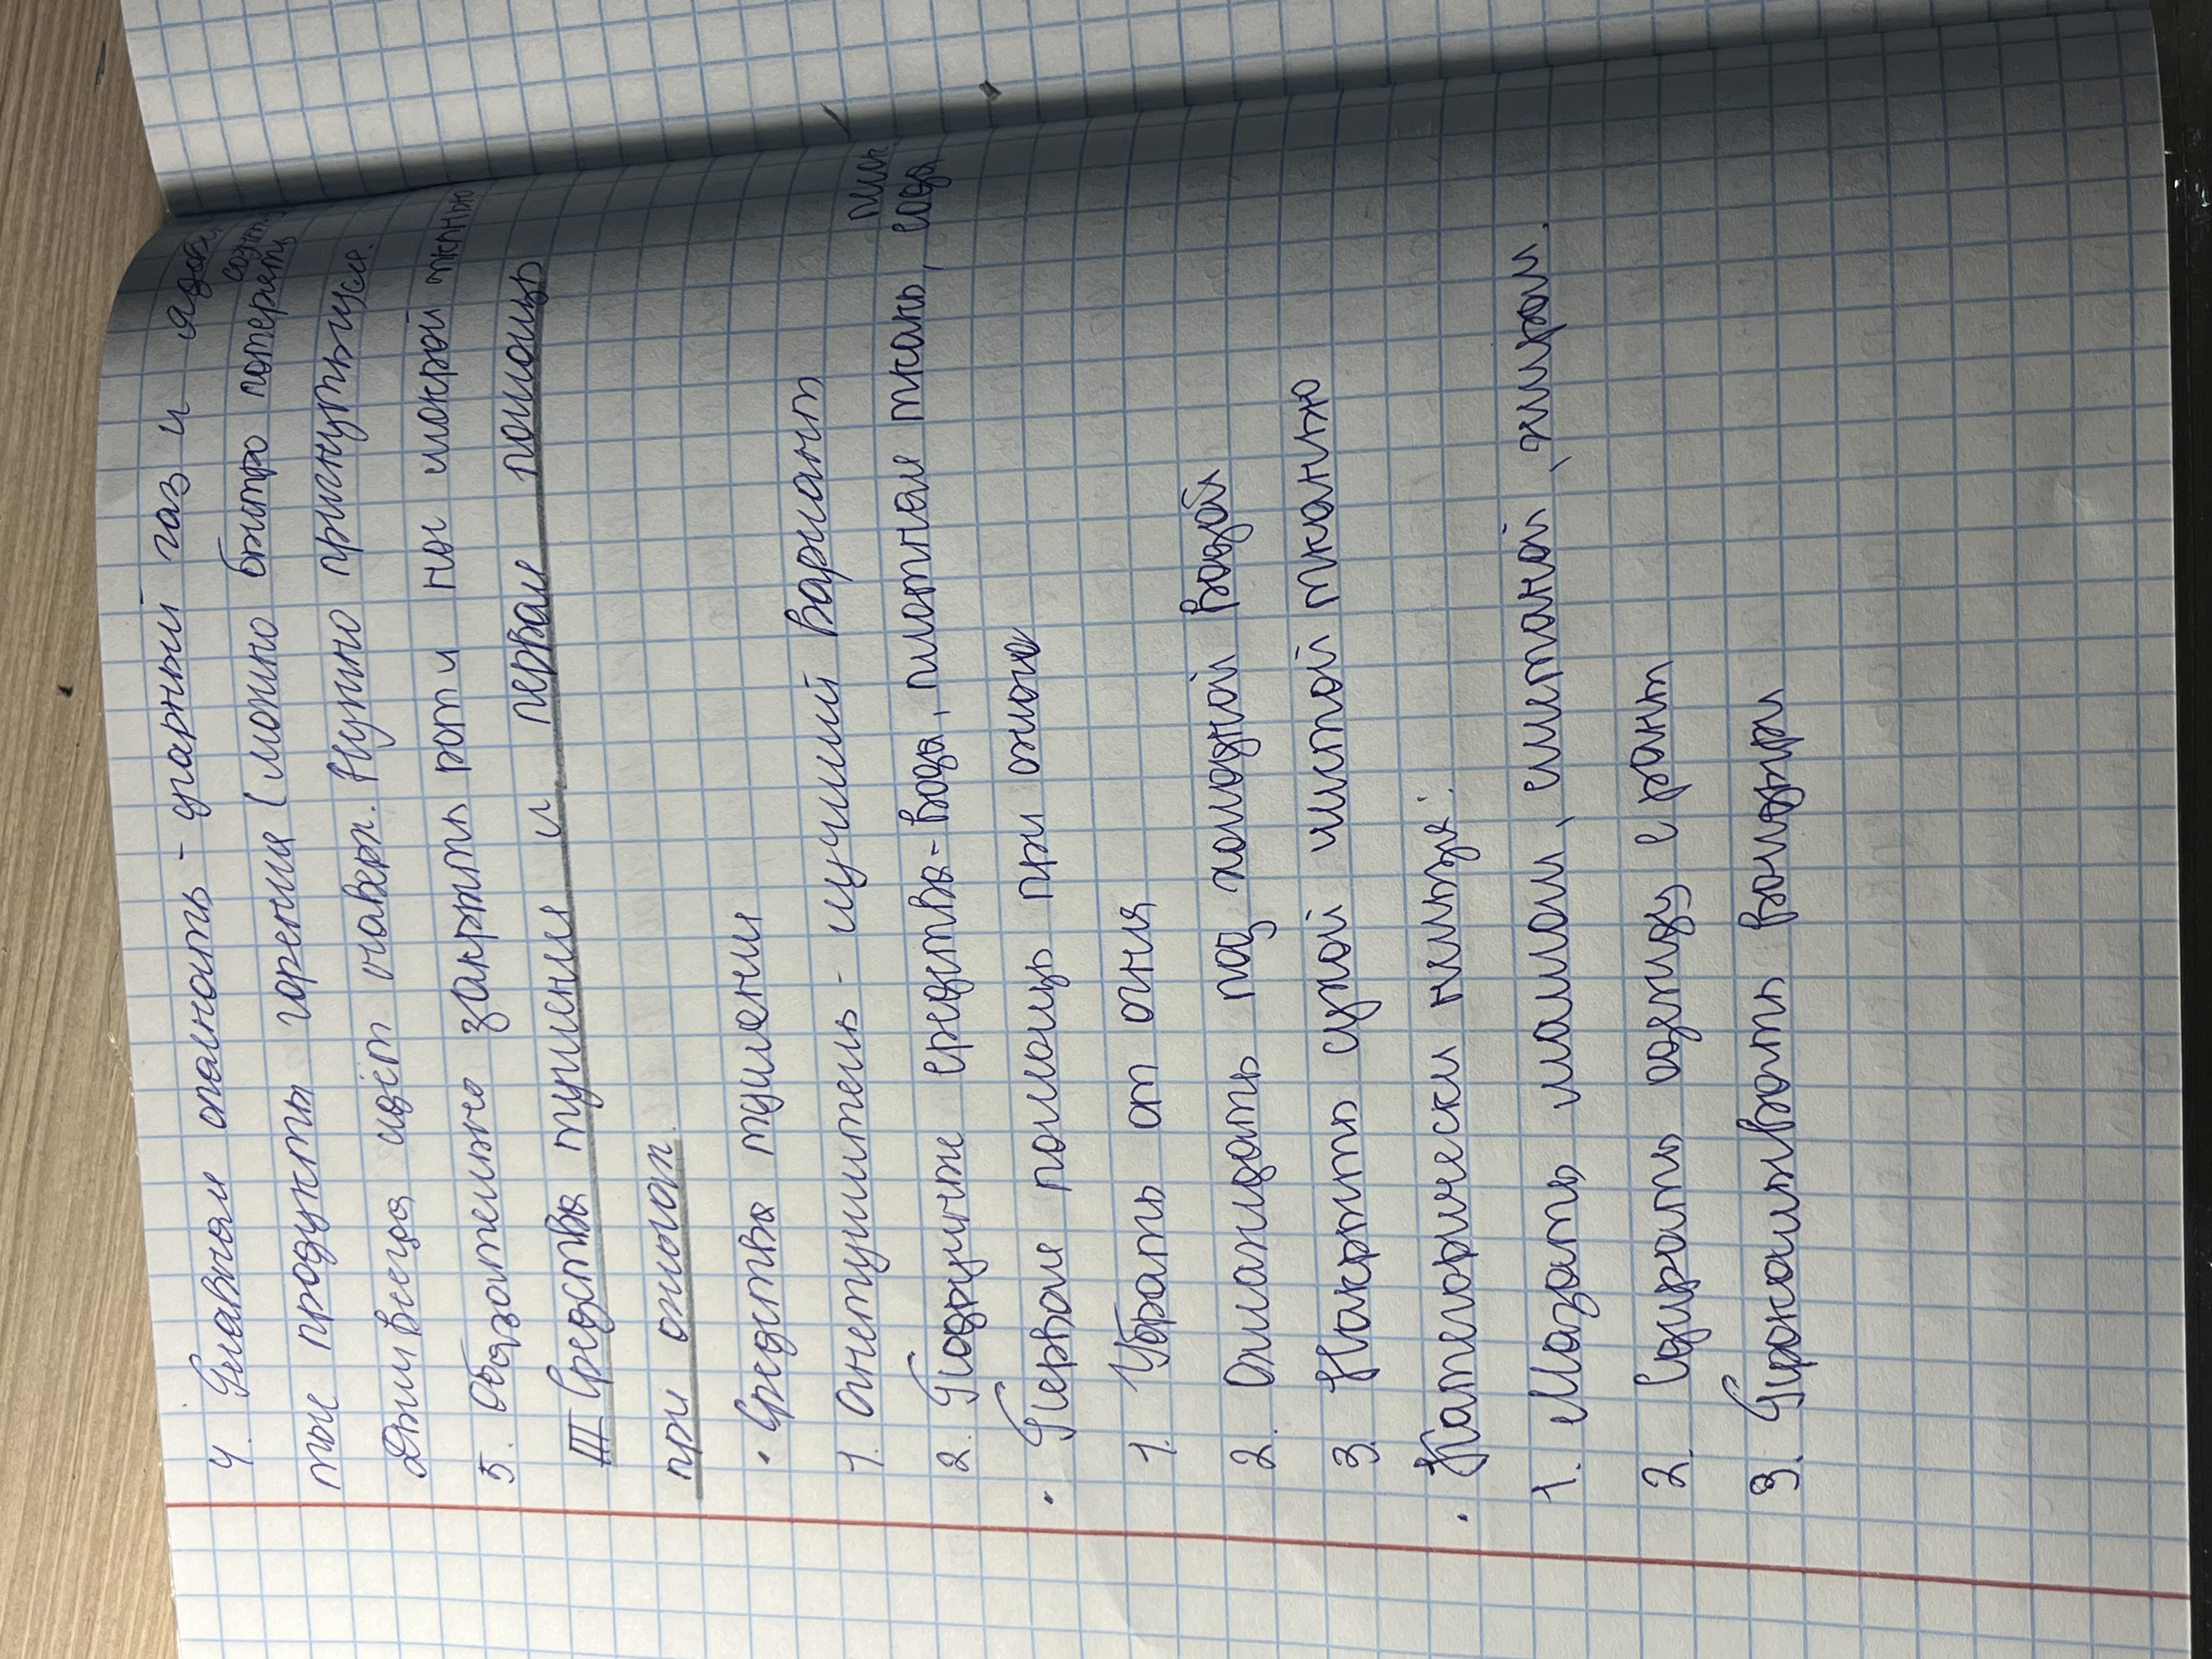 4. Главная опасность - угарный газ и ядови
тые продукты горения (можно быстро потерять созн
Дым всегда идёт наверх. Нужно пригнуться.
5. Обязательно закрыть рот и нос мокрой тканью
III Средства тушения и первая помощь
при ожогах.
• Средства тушения
1. Огнетушитель - лучший вариант
2. Подручные средства - вода, плотная ткань, сода
• Первая помощь при ожоге
1. Убрать от огня
2. Охлаждать под холодной водой
3. Накрыть сухой чистой тканью
• Категорически нельзя:
1. Мазать маслом, сметаной, жиром.
2. Сдирать одежду с ран
3. Прокалывать волдыри